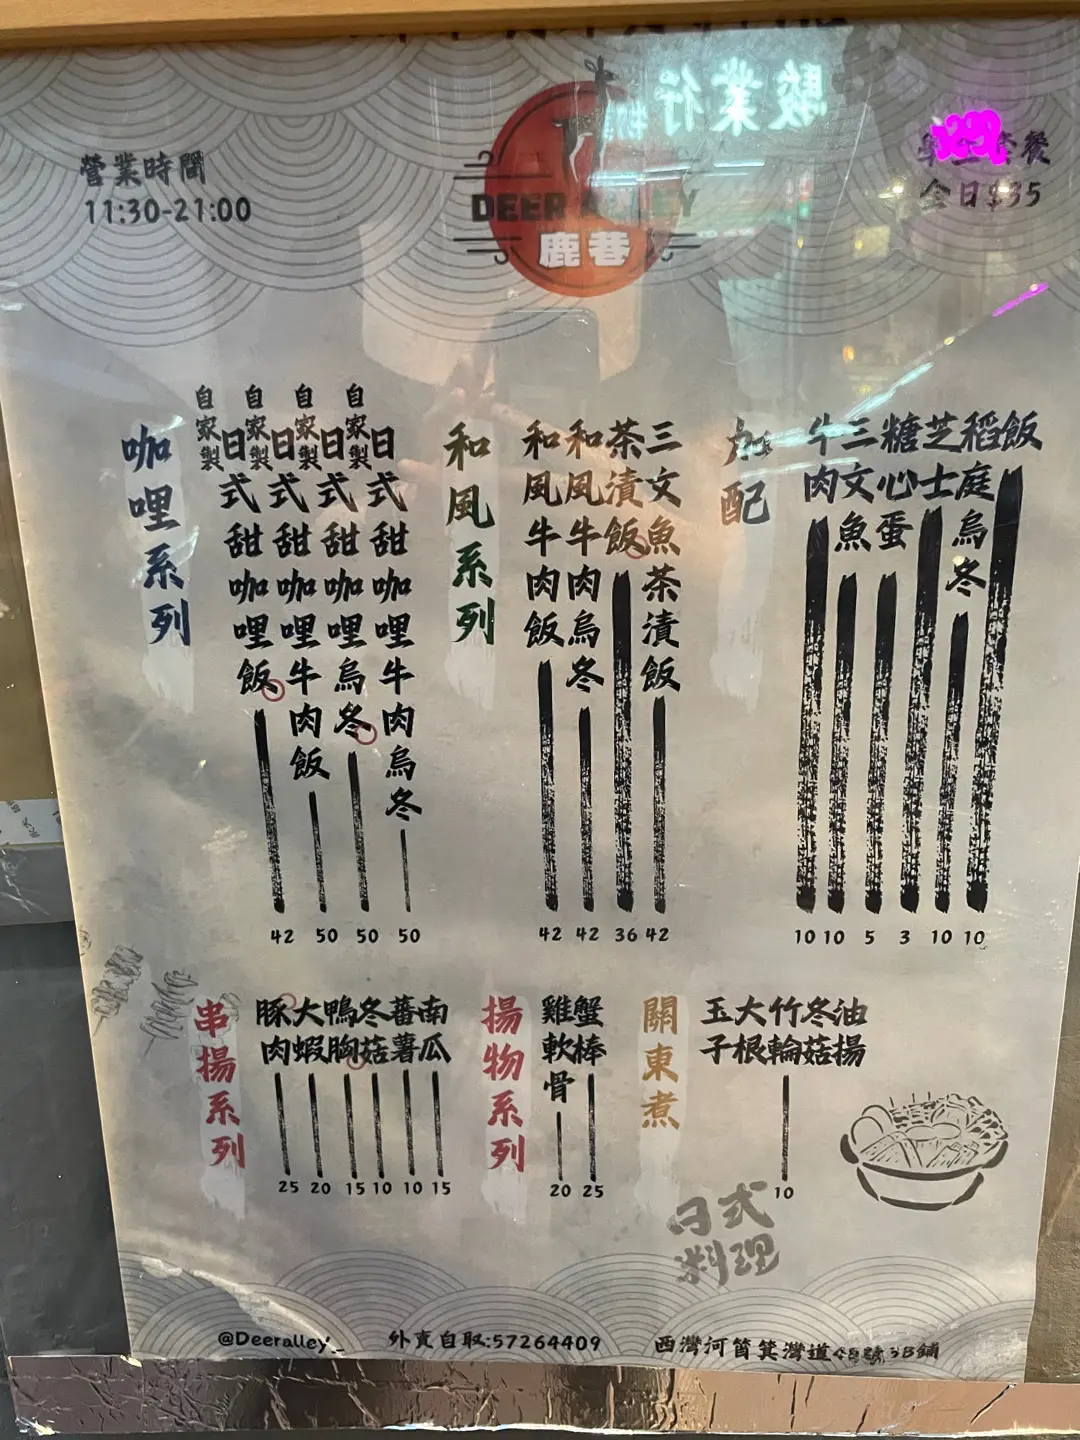 駿業行
營業時間
11:30-21:00
DEER ALLEY
鹿巷
套餐
全日$35
咖哩系列
自家製日式甜咖哩飯 42
自家製日式甜咖哩牛肉飯 50
自家製日式甜咖哩烏冬 50
自家製日式甜咖哩牛肉烏冬 50
和風系列
和風牛肉飯 42
和風牛肉烏冬 42
茶漬飯 36
三文魚茶漬飯 42
加配
牛肉 10
三文魚 10
糖心蛋 5
芝士 3
稻庭烏冬 10
飯 10
串揚系列
豚肉 25
大蝦 20
鴨胸 15
冬菇 10
蕃薯 10
南瓜 15
揚物系列
雞軟骨 20
蟹棒 25
關東煮
玉子
大根
竹輪
冬菇
油揚
10
日式
料理
@Deeralley_
外賣自取:57264409
西灣河筲箕灣道 號 3B鋪